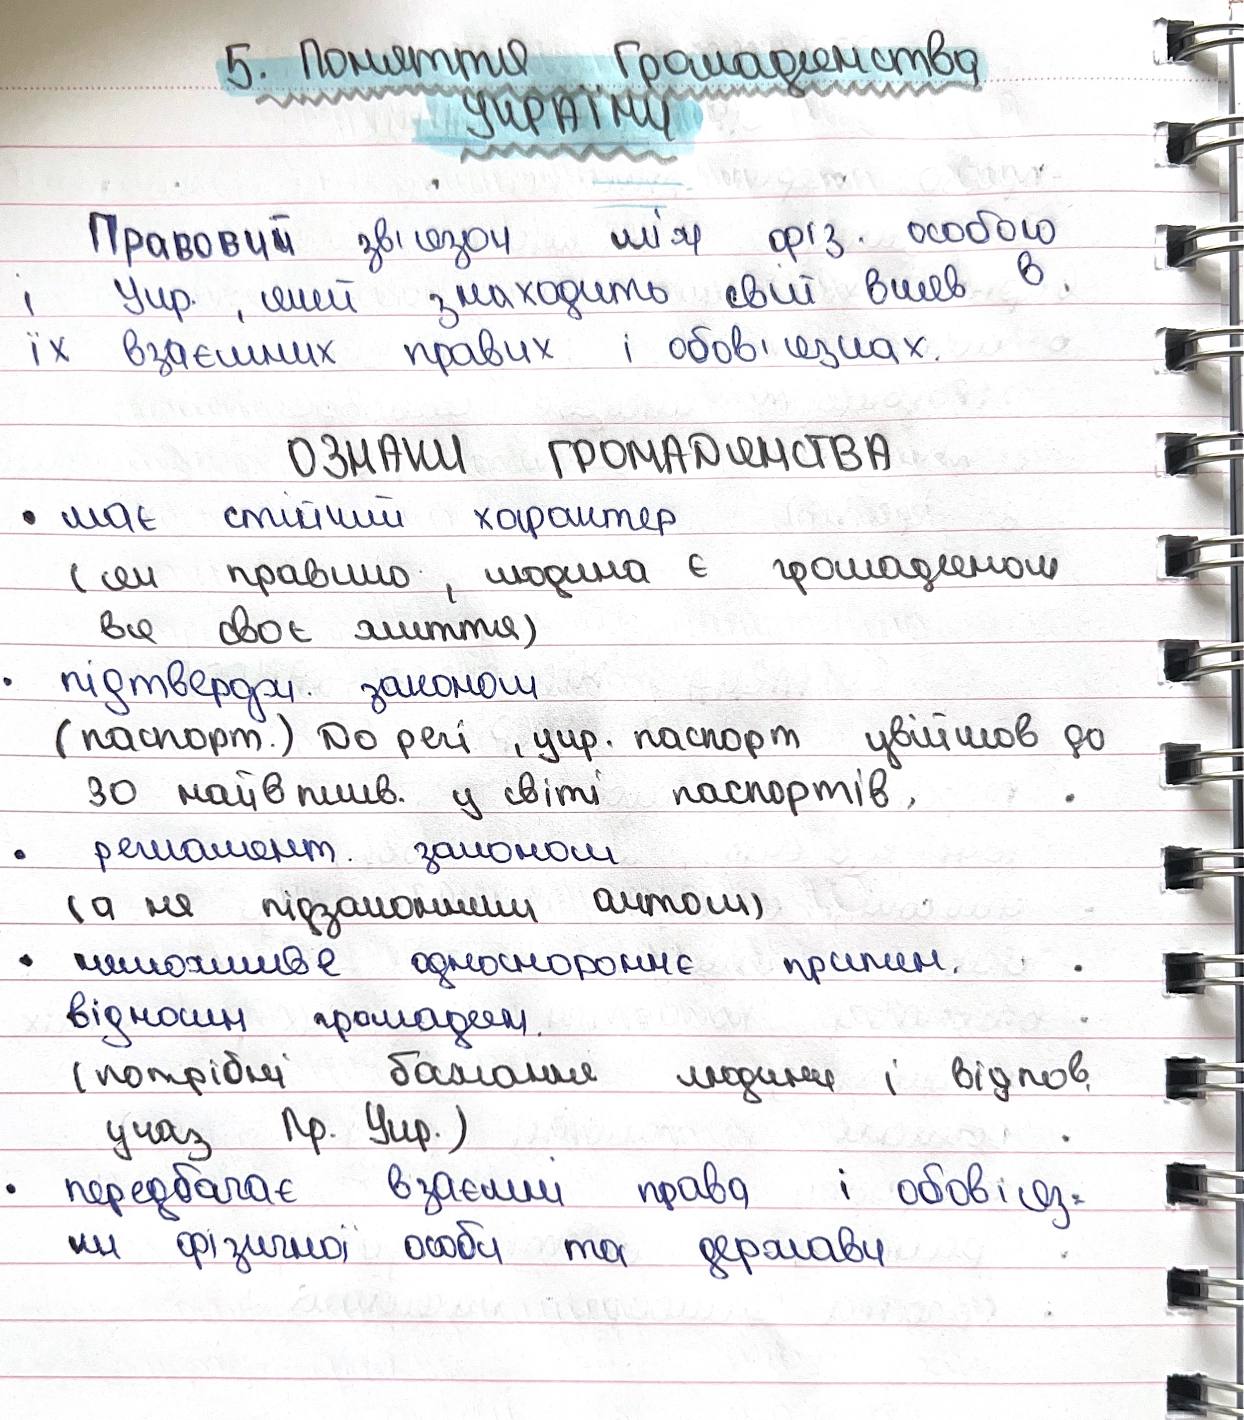 5. Поняття Громадянства
УКРАЇНИ
Правовий зв'язок між фіз. особою
і Укр., який знаходить свій вияв в
їх взаємних правих і обов'язках.
ОЗНАКИ ГРОМАДЯНСТВА
• має стійкий характер
(як правило, людина є громадяном
все своє життя)
• підтвердж. законом
(паспорт.) До речі, укр. паспорт увійшов до
30 найвплив. у світі паспортів.
• регламент. законом
(а не підзаконним актом)
• неможливе одностороннє припин.
відносин громадян.
(потрібні бажання людини і відпов.
указ Пр. Укр.)
• передбачає взаємні права і обов'яз-
ки фізичної особи та держави